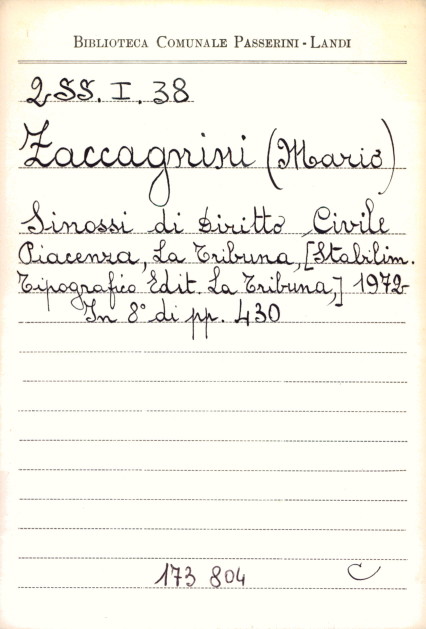 BIBLIOTECA COMUNALE PASSERINI - LANDI
2SS. I. 38
Zaccagnini (Mario)
Sinossi di Diritto Civile
Piacenza, La Tribuna, [Stabilim.
Tipografico Edit. La Tribuna,] 1972
In 8° di pp. 430
173 804 C